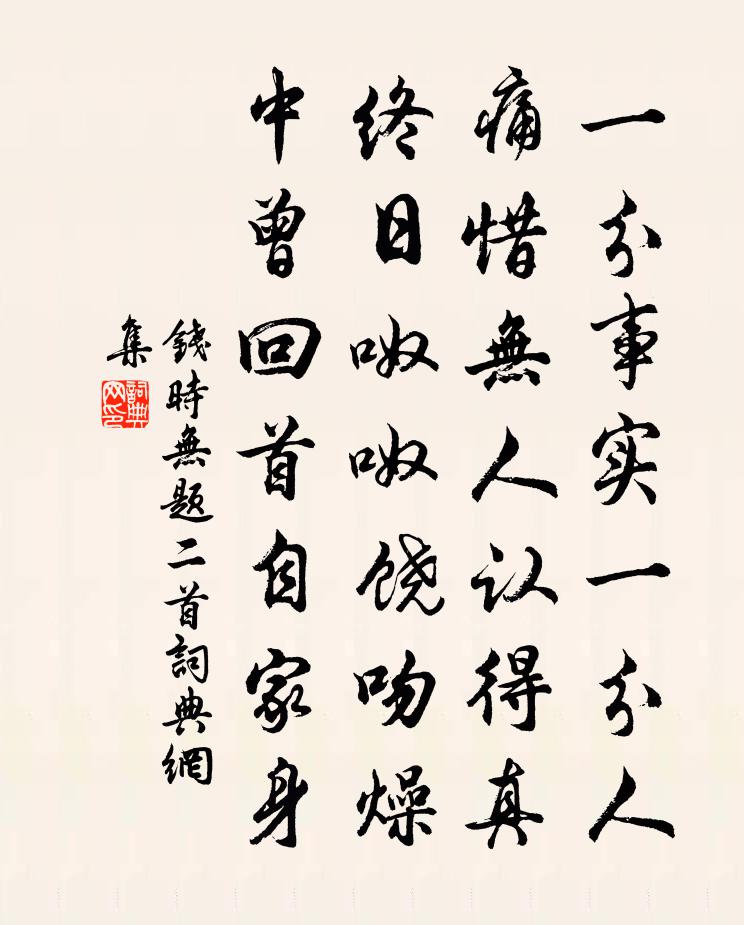 一分事实一分人
痛惜無人认得真
终日呶呶饶吻燥
中曾回首自家身
錢時無题二首詞典網
集
詞典网印